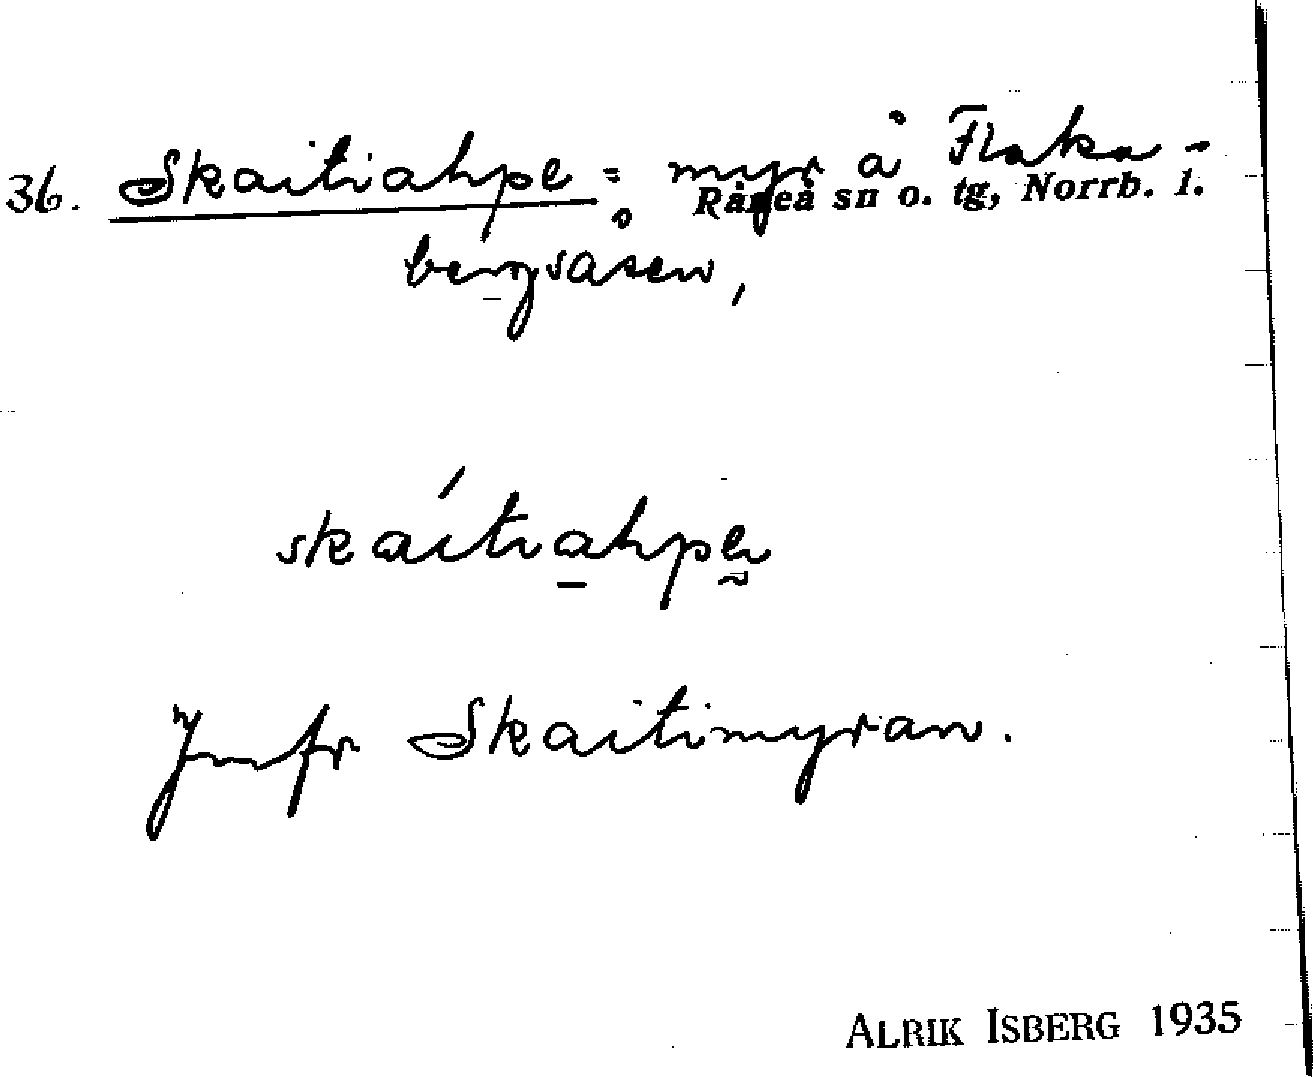 36. Skaitiahpe = myr å Flaka-
Råneå sn o. tg, Norrb. l.
bergsåsen,
skáitiahpe̮
Jmfr Skaitimyran.
ALRIK ISBERG 1935